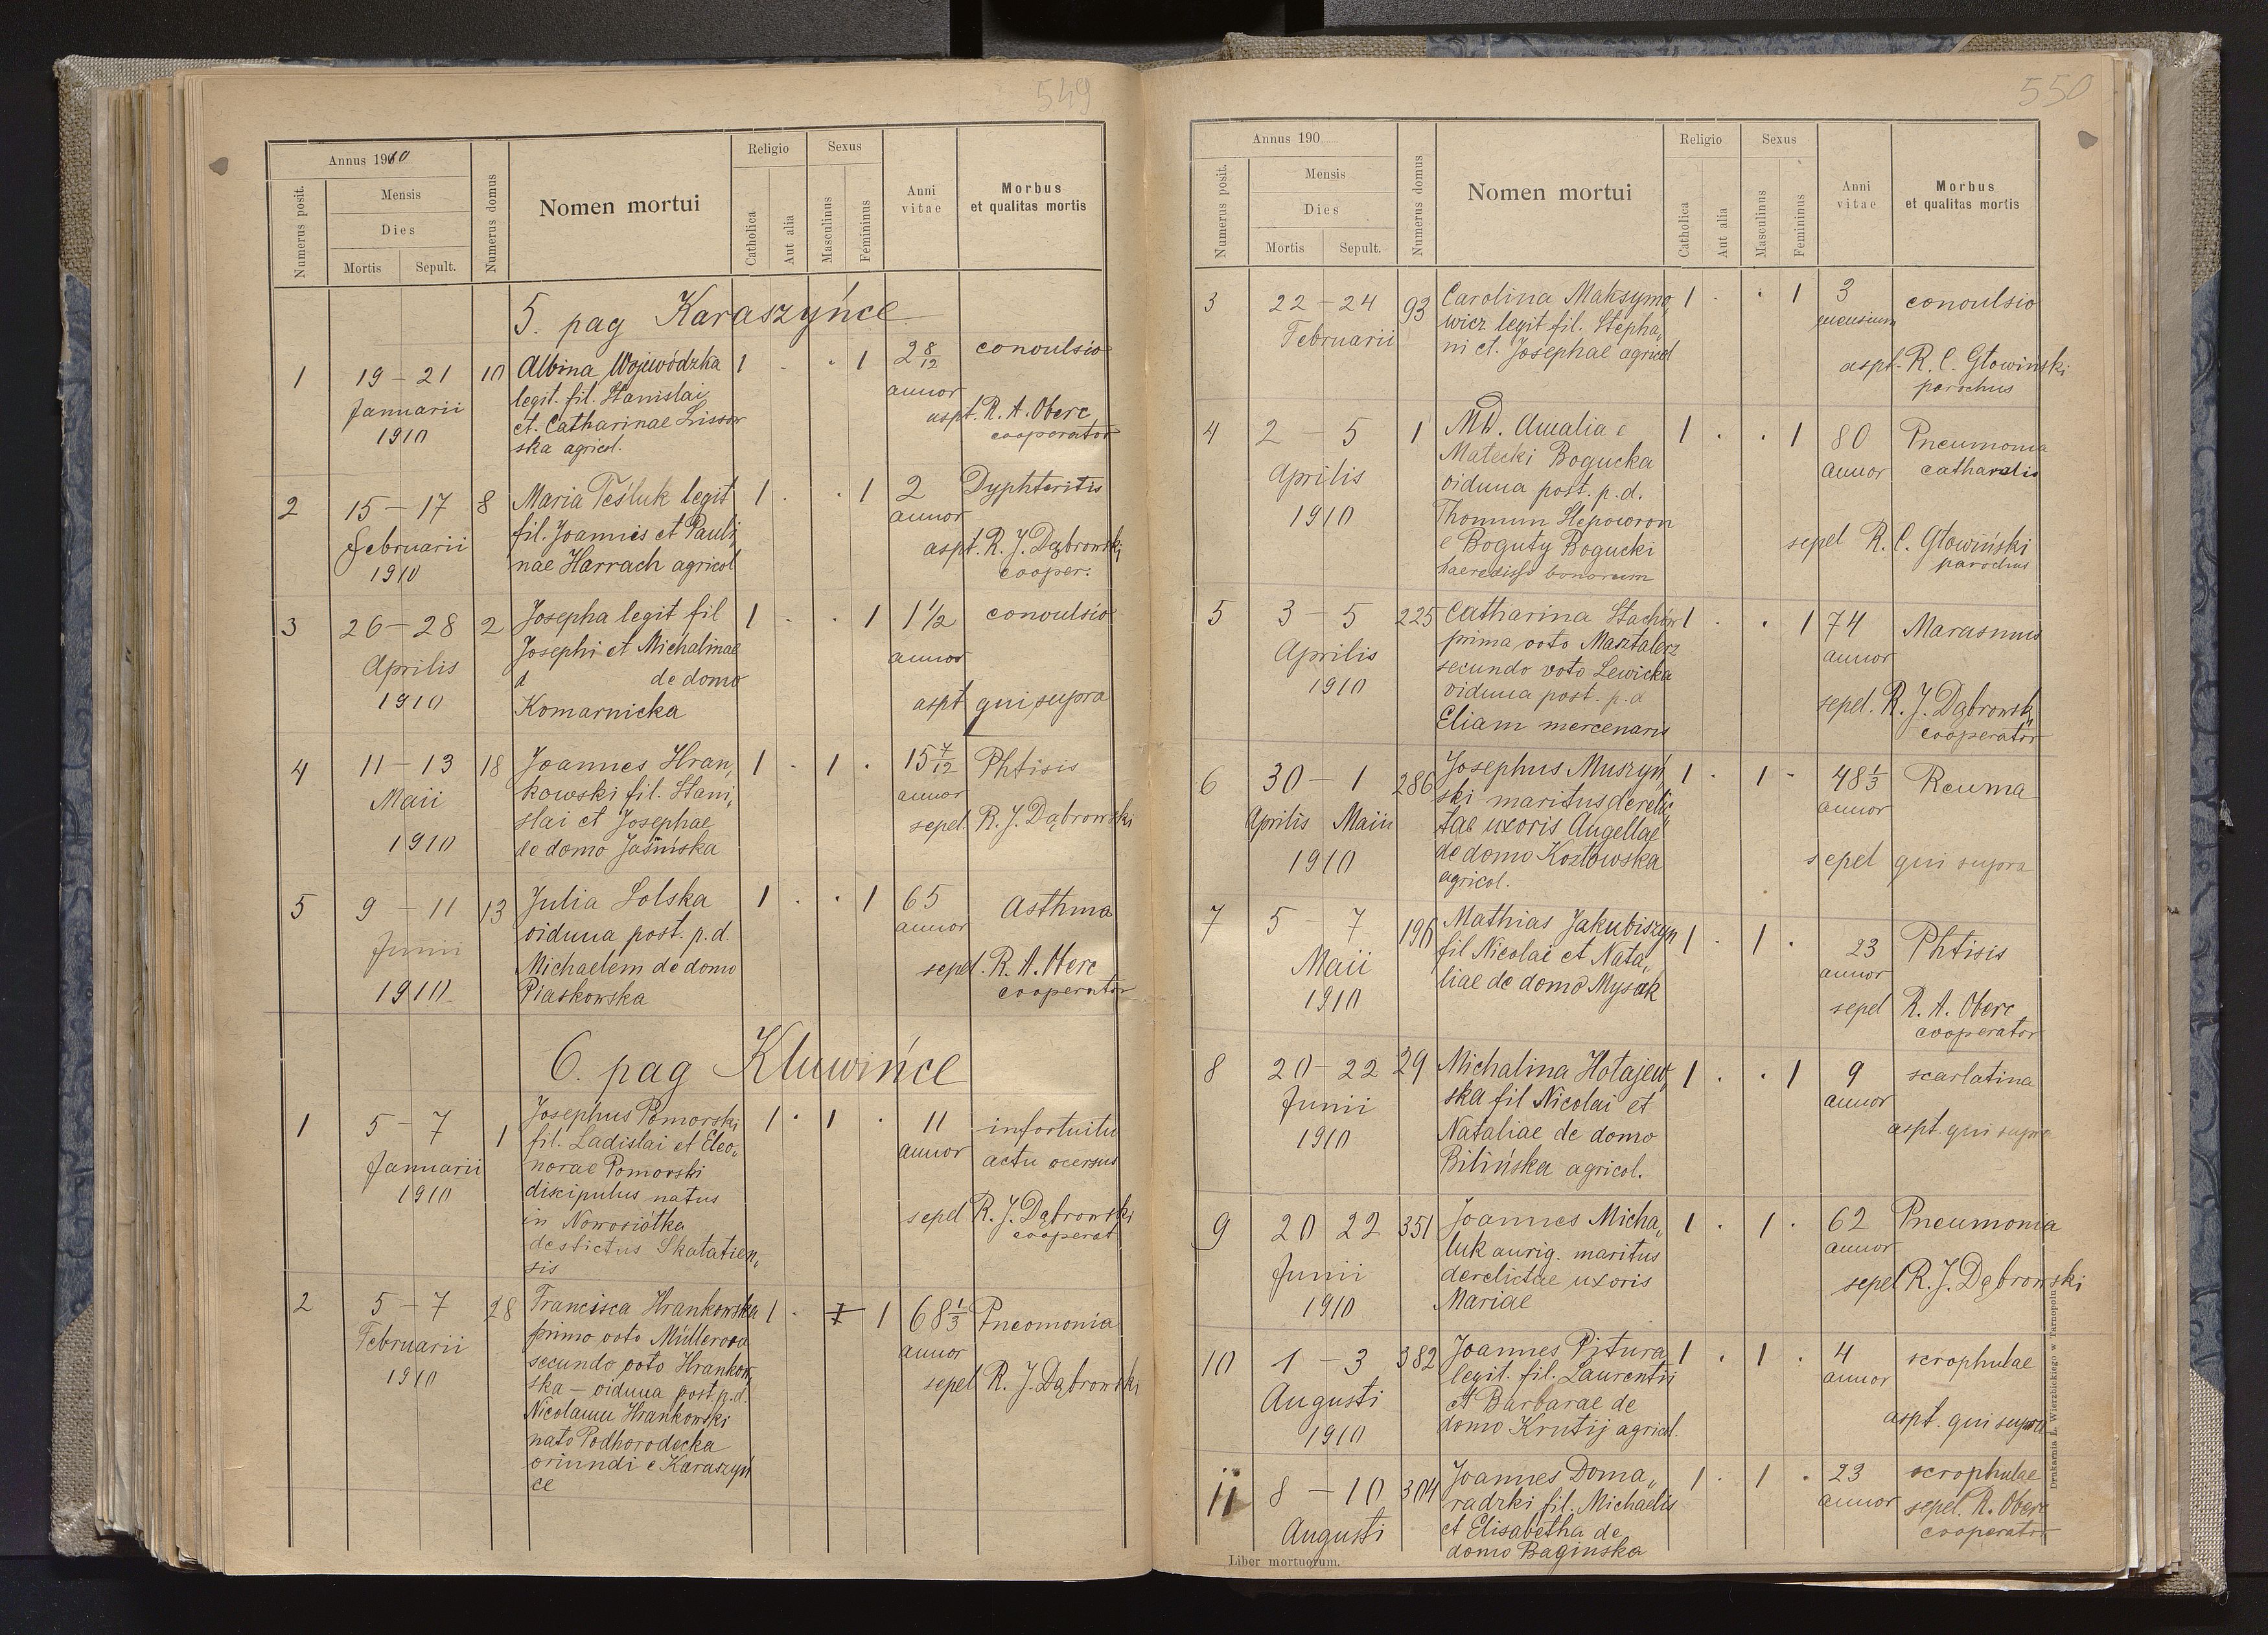 549
Annus 1910
Numerus posit.
Mensis
Dies
Mortis
Sepult.
Numerus domus
Nomen mortui
Religio
Catholica
Aut alia
Sexus
Masculinus
Femininus
Anni
vitae
Morbus
et qualitas mortis
5. pag Karaszyńce
1 19 - 21 10 Albina Wojewódzka 1 . . 1 2 8/12 convulsio
Januarii legit. fil. Stanislai annor
1910 et. Catharinae Lissow aspt. R. A. Oberc
ska agricol. cooperator
2 15 - 17 8 Maria Teśluk legit 1 . . 1 2 Dyphteritis
Februarii fil. Joannis et Pauli, annor
1910 nae Harrach agricol aspt. R. J. Dąbrowski
cooper.
3 26 - 28 2 Josepha legit fil 1 . . 1 1 1/2 convulsio
Aprilis Josephi et Michalinae annor
de domo
1910 Komarnicka aspt qui supra
4 11 - 13 18 Joannes Hran, 1 . 1 . 15 7/12 Phtisis
Maii kowski fil. Stani, annor
slai et Josephae sepel. R. J. Dąbrowski
1910 de domo Jasińska
5 9 - 11 13 Julia Solska 1 . . 1 65 Asthma
Junii vidua post. p. d. annor
Michaelem de domo sepel. R. A. Oberc
1910 Piaskowska cooperator
6. pag Kluwińce
1 5 - 7 1 Josephus Pomorski 1 . 1 . 11 infortuitu
Januarii fil. Ladislai et Eleo, annor actu
1910 norae Pomorski
discipulus natus
in Nowosiółka sepel R. J. Dąbrowski
destictus Skałatien, cooperat
sis
2 5 - 7 28 Francisca Hrankowska 1 . 1 1 68 1/3 Pneomonia
Februarii primo voto Müllerova annor
1910 secundo voto Hrankow, sepel R. J. Dąbrowski
ska - vidua post p. d.
Nicolaum Hrankowski
nato Podhorodecka
oriundi e Karaszyń
ce
550
Annus 190
Numerus posit.
Mensis
Dies
Mortis
Sepult.
Numerus domus
Nomen mortui
Religio
Catholica
Aut alia
Sexus
Masculinus
Femininus
Anni
vitae
Morbus
et qualitas mortis
3 22 - 24 93 Carolina Maksymo, 1 . . 1 3 convulsio
Februarii wicz legit fil. Stepha, mensium
ni et. Josephae agricol aspt. R. C. Głowiński
parochus
4 2 - 5 1 MD. Amalia e 1 . . 1 80 Pneumonia
Aprilis Małecki Bogucka annor catharalis
1910 vidua post. p. d.
Thomum Slepowron
e Boguty Bogucki sepel R. C. Głowiński
haeredissa bonorum parochus
5 3 - 5 225 Catharina Stachów 1 . . 1 74 Marasmus
Aprilis prima voto Masztalerz annor
1910 secundo voto Lewicka
vidua post. p. d sepel. R. J. Dąbrowsk,
Eliam mercenaris cooperator
6 30 - 1 286 Josephus Muszyń, 1 . 1 - 48 1/3 Reuma
Aprilis Maii ski maritus derelic, annor
1910 tae uxoris Angellae
de domo Kozłowska sepel qui supra
agricol.
7 5 - 7 190 Mathias Jakubiszyn 1 . 1 . 23 Phtisis
Maii fil Nicolai et Nata, annor
1910 liae de domo Mysak sepel R. A. Oberc
cooperator
8 20 - 22 29 Michalina Hołajew, 1 . . 1 9 scarlatina
Junii ska fil Nicolai et annor
1910 Nataliae de domo aspt. qui supra
Bilińska agricol.
9 20 22 351 Joannes Micha, 1 . 1 . 62 Pneumonia
Junii luk aurig. maritus annor
derelictae uxoris sepel R. J. Dąbrowski
1910 Mariae
10 1 - 3 382 Joannes Pitura 1 . 1 . 4 scrophulae
Augusti legit. fil. Laurentii annor
et Barbarae de aspt. qui supra
1910 domo Krutij agricol.
11 8 - 10 304 Joannes Doma, 1 . 1 . 23 scrophulae
radzki fil. Michaelis annor sepel. R. Oberc
Augusti et Elisabetha de cooperator
domo Baginska
Liber mortuorum.
Drukarnia L. Wierzbickiego w Tarnopolu